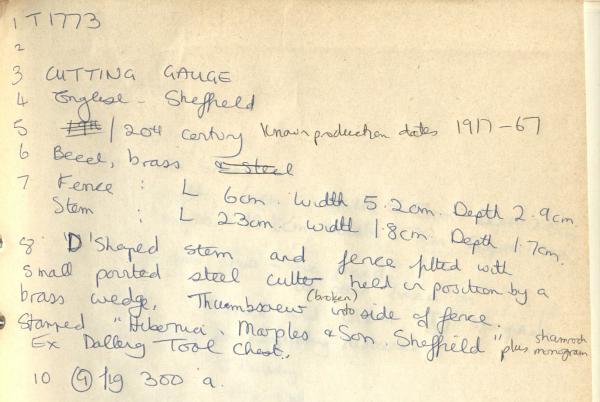 1 T1773
2
3 CUTTING GAUGE
4 English - Sheffield
5 19th / 20th century Known production dates 1917-67
6 Beech, brass & steel
7 Fence : L 6cm. Width 5.2cm. Depth 2.9cm.
Stem : L 23cm. width 1.8cm. Depth 1.7cm.
8 'D' Shaped stem and fence fitted with
small pointed steel cutter held in position by a
brass wedge. Thumbscrew (broken) into side of fence.
Stamped "Hibernia. Marples & Son. Sheffield" plus shamrock monogram
Ex Dallery Tool Chest.
10 9 fig 300 a.